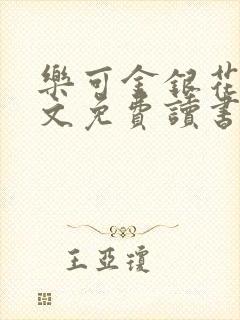 樂可金銀花
文免費讀書
王亞瓊